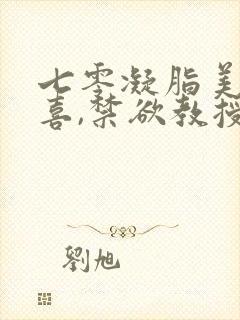 七零凝脂美
喜,禁欲教授
劉旭